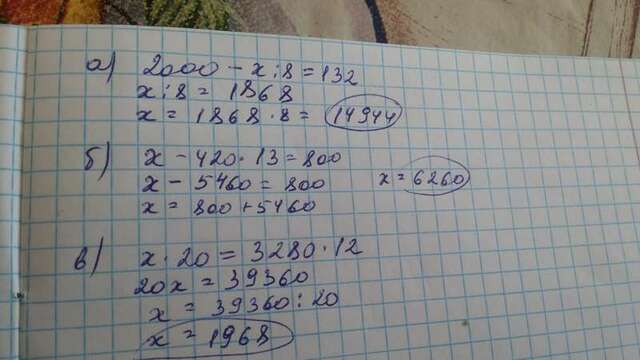 а) 2000 - x : 8 = 132
x : 8 = 1868
x = 1868 · 8 = 14944
б) x - 420 · 13 = 800
x - 5460 = 800 x = 6260
x = 800 + 5460
в) x · 20 = 3280 · 12
20x = 39360
x = 39360 : 20
x = 1968